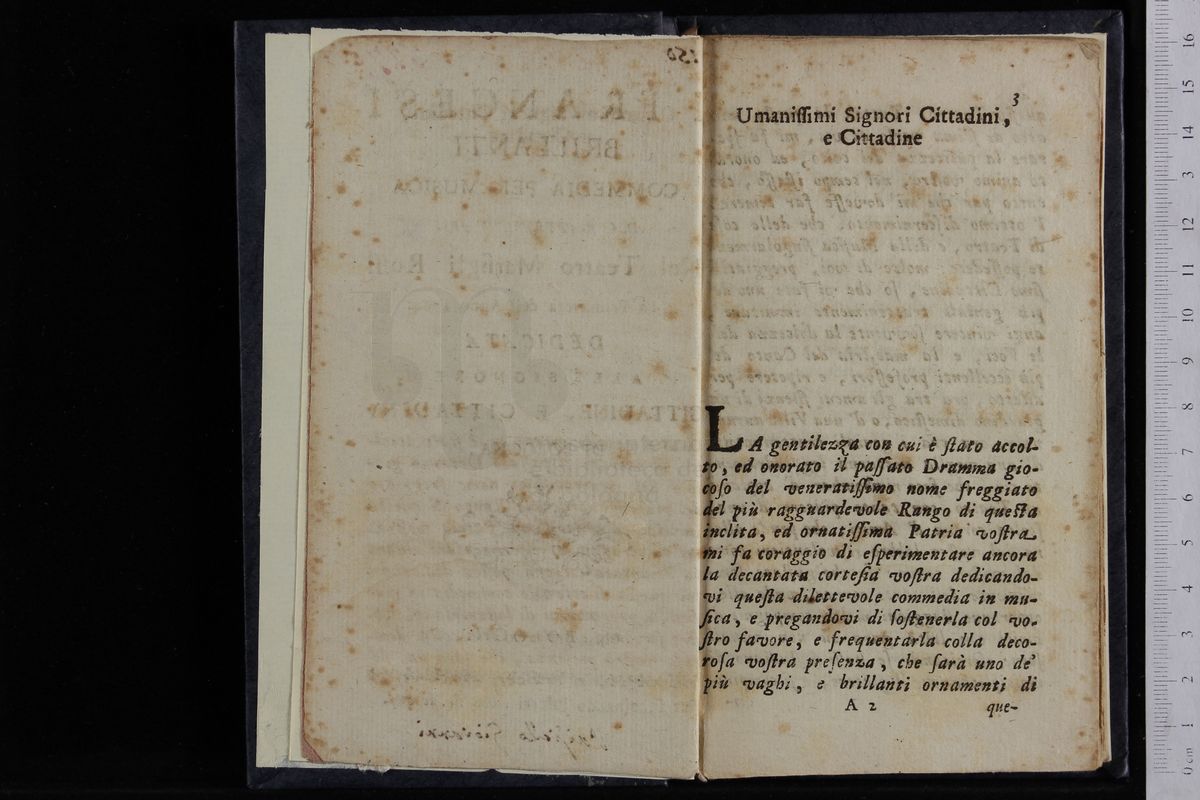 3
Umaniſſimi Signori Cittadini,
e Cittadine
LA gentilezza con cui è ſtato accol-
to, ed onorato il paſſato Dramma gio-
coſo del veneratiſſimo nome freggiato
del più ragguardevole Rango di queſta
inclita, ed ornatiſſima Patria voſtra
mi fa coraggio di eſperimentare ancora
la decantata corteſia voſtra dedicando-
vi queſta dilettevole commedia in mu-
ſica, e pregandovi di ſoſtenerla col vo-
ſtro favore, e frequentarla colla deco-
roſa voſtra preſenza, che ſarà uno de'
più vaghi, e brillanti ornamenti di
A 2 que-